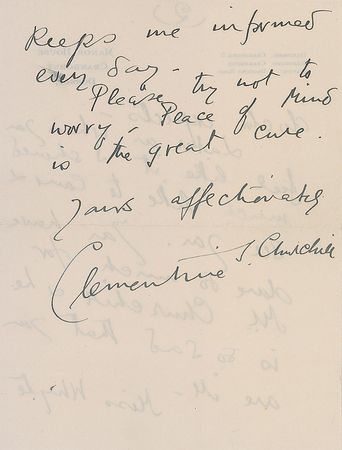 Keeps me informed
every day -
Please try not to
worry - Peace of Mind
is the great cure.
Yours affectionately
Clementine S. Churchill